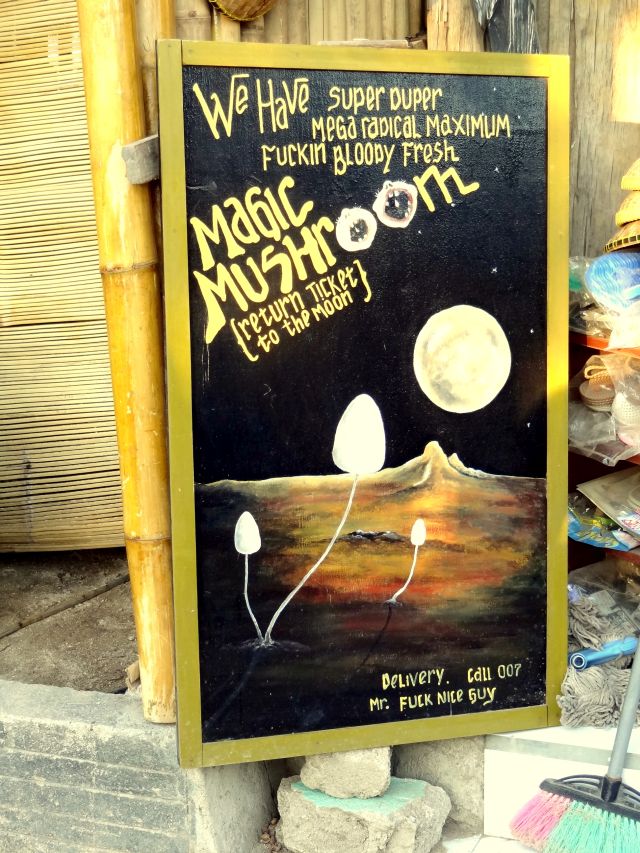 We Have super Duper
Mega radical Maximum
Fuckin Bloody Fresh
Magic
Mushroom
{return Ticket
to the Moon}
Delivery. Call 007
Mr. Fuck Nice Guy